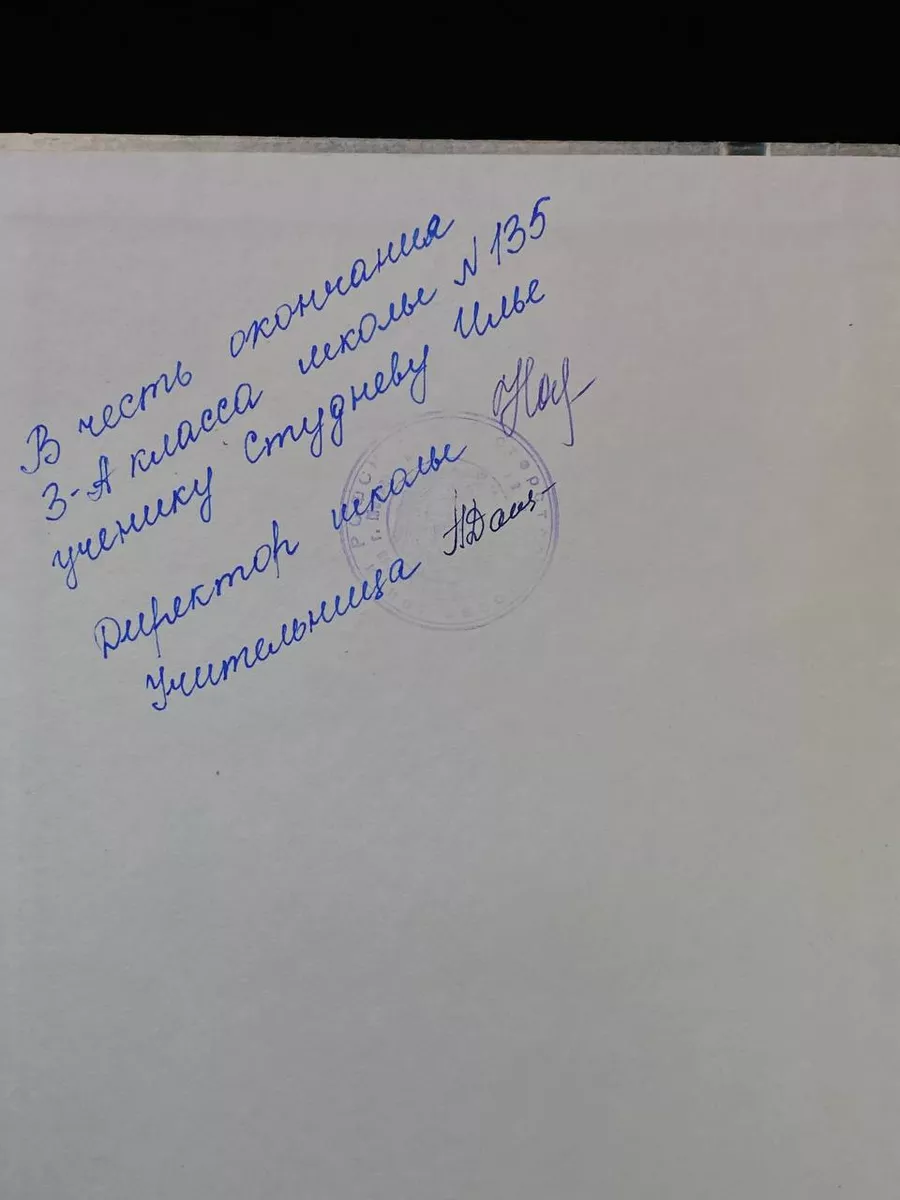 В честь окончания
3-А класса школы N 135
ученику Студневу Илье
Директор школы
Учительница